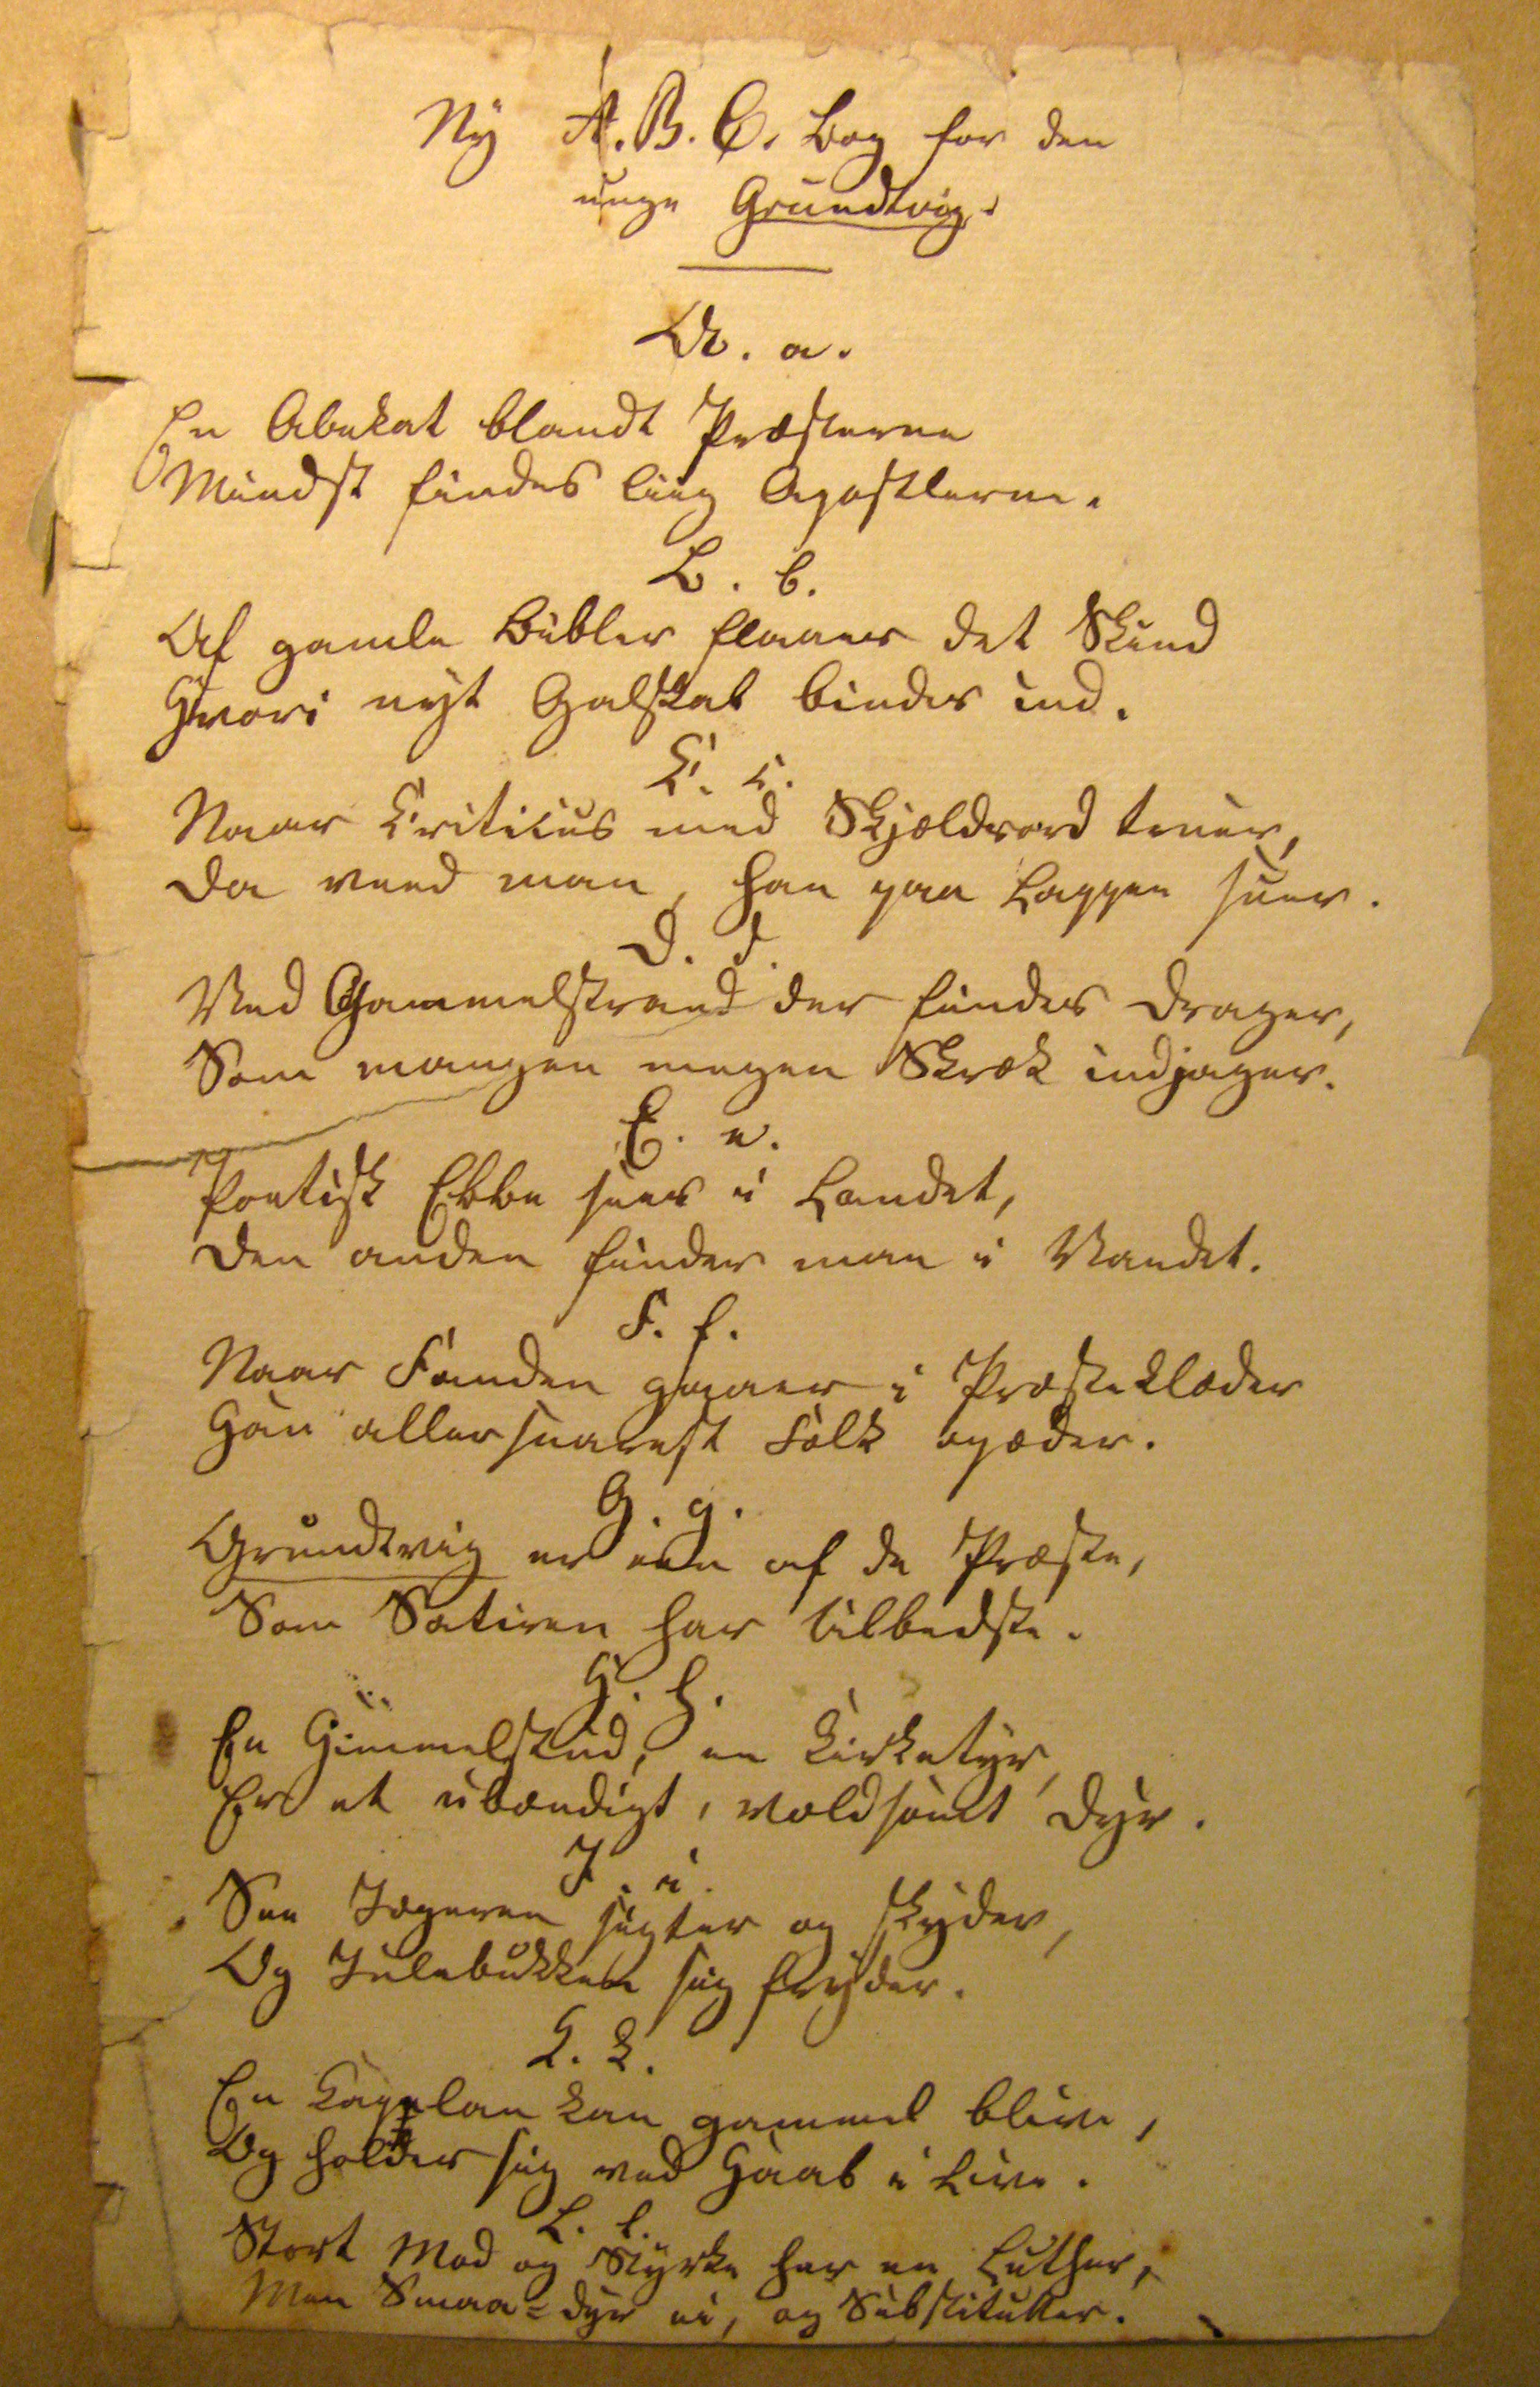 Ny A. B. C. Bog for den
unge Grundtvig.
A. a.
En Abekat blandt Præsterne
Mindst findes liig Apostlerne.
B. b.
Af gamle Bibler flaaes det Skind
Hvori nyt Galskab bindes ind.
C. c.
Naar Criticus med Skjældsord truer,
Da veed man, han paa Lappen suer.
D. d.
Ved Gammelstrand der findes Drager,
Som mangen megen Skræk indjager.
E. e.
Poetisk Ebbe sees i Landet,
Den anden finder man i Vandet.
F. f.
Naar Fanden gaaer i Præsteklæder
Han allersnarest Folk opæder.
G. g.
Grundtvig er een af de Præste,
Som Satiren har tilbedste.
H. h.
En Himmelstud, en Kirketyr,
Er et ubændigt, voldsomt Dyr.
I. i.
See Jægeren sigter og skyder,
Og Julebukken sig fryder.
K. k.
En Kapelan kan gammel blive,
Og holder sig ved Haab i Live.
L. l.
Stort Mod og Styrke har en Luther,
Men Smaa=dyr ei, og Substituter.